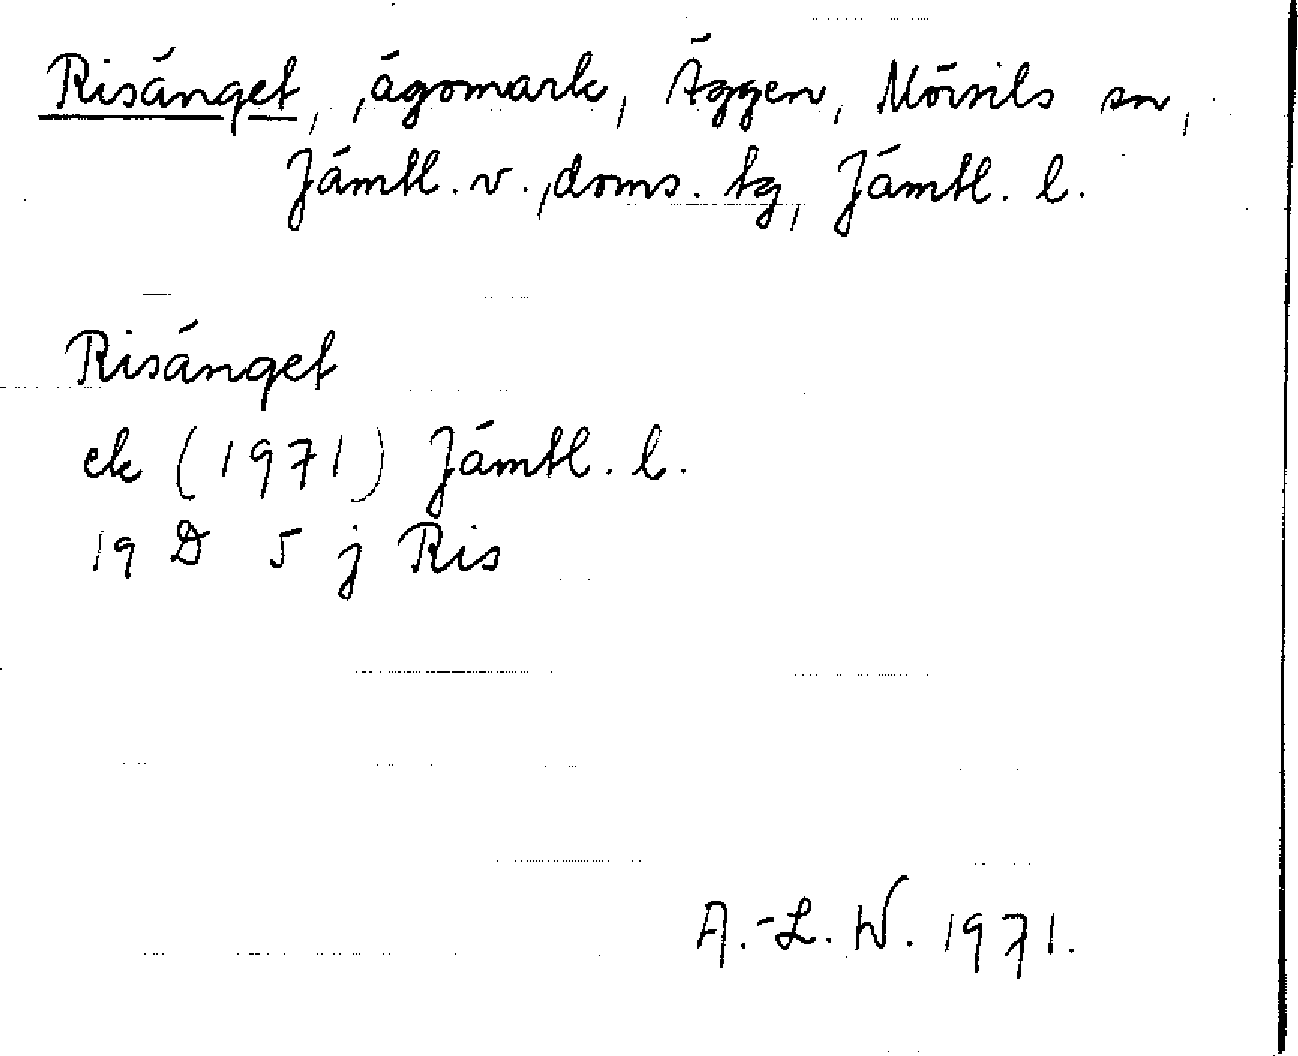 Risänget, ägomark, Äggen, Mörsils sn,
Jämtl. v., doms. tg, Jämtl. l.
Risänget
ek (1971) Jämtl. l.
19 D 5 j Ris
A.-L. W. 1971.